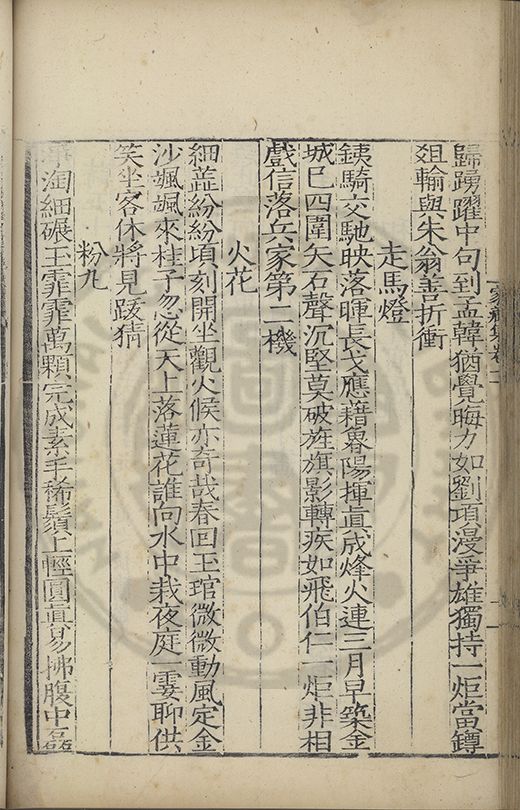 歸踴躍中句到孟韓猶覺晦力如劉項漫爭雄獨持一炬當鐏
俎輸與朱翁善折衝
走馬燈
銕騎交馳映落暉長戈應藉魯陽揮眞成烽火連三月早築金
城巳四圍矢石聲沉堅莫破旌旗影轉疾如飛伯仁一炬非相
戲信落兵家第二機
火花
細蕋紛紛頃刻開坐觀火候亦奇哉春回玉琯微微動風定金
沙颯颯來桂子忽從天上落蓮花誰向水中栽夜庭一霎聊供
笑坐客休將見跋猜
粉丸
淘細碾玉霏霏萬顆完成素手稀鬚上輕圓眞易拂腹中磊